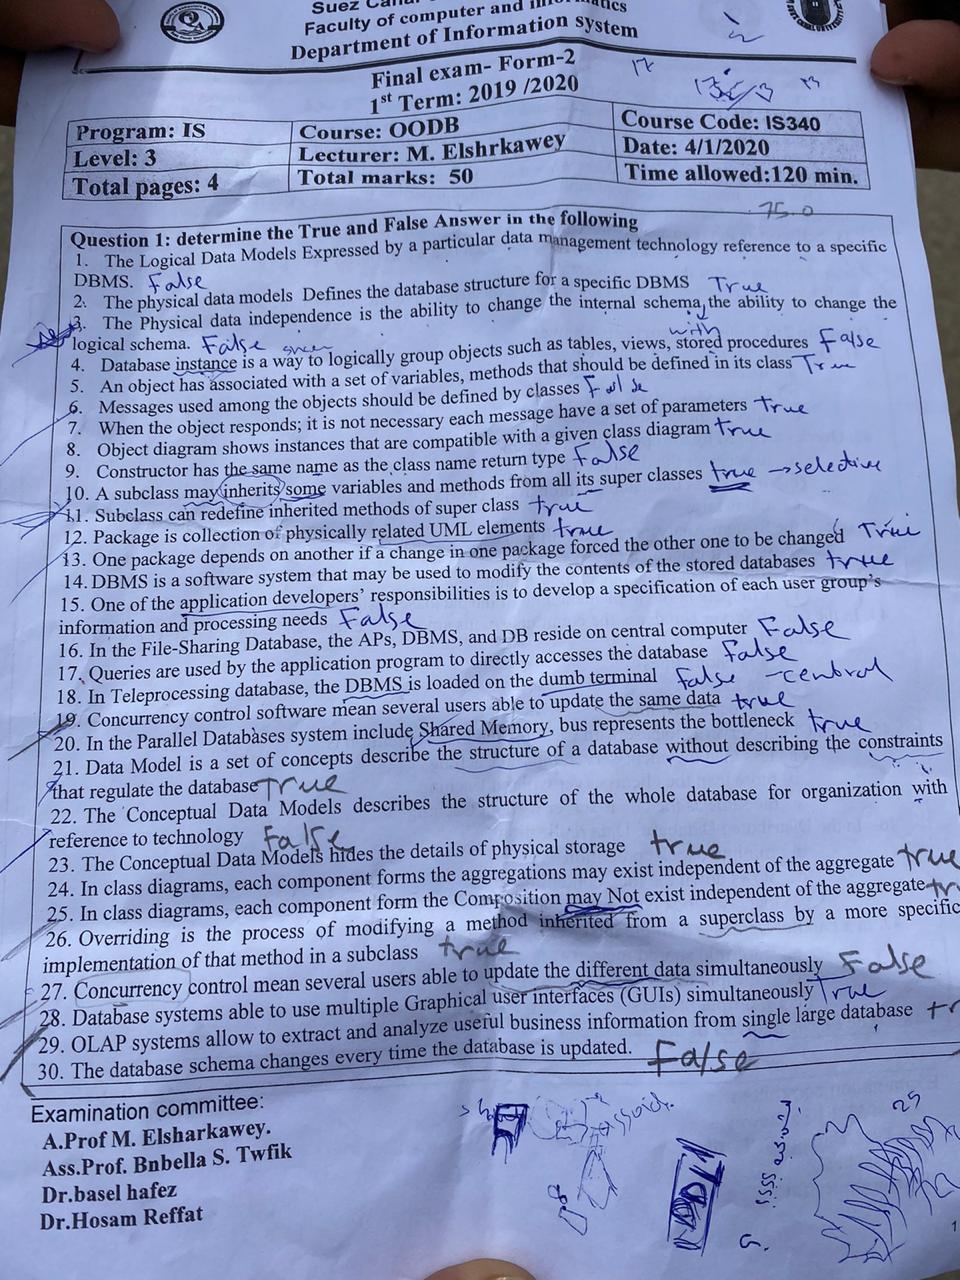 Suez Canal
Faculty of computer and informatics
Department of Information system
Final exam- Form-2
1st Term: 2019 /2020
17
Program: IS
Course: OODB
Course Code: IS340
Level: 3
Lecturer: M. Elshrkawey
Date: 4/1/2020
Total pages: 4
Total marks: 50
Time allowed:120 min.
75.0
Question 1: determine the True and False Answer in the following
1. The Logical Data Models Expressed by a particular data management technology reference to a specific
DBMS. False
2. The physical data models Defines the database structure for a specific DBMS True
3. The Physical data independence is the ability to change the internal schema, the ability to change the
logical schema. False with
4. Database instance is a way to logically group objects such as tables, views, stored procedures False
5. An object has associated with a set of variables, methods that should be defined in its class True
6. Messages used among the objects should be defined by classes False
7. When the object responds; it is not necessary each message have a set of parameters true
8. Object diagram shows instances that are compatible with a given class diagram true
9. Constructor has the same name as the class name return type False
10. A subclass may inherits some variables and methods from all its super classes true → selective
11. Subclass can redefine inherited methods of super class true
12. Package is collection of physically related UML elements true
13. One package depends on another if a change in one package forced the other one to be changed True
14. DBMS is a software system that may be used to modify the contents of the stored databases true
15. One of the application developers' responsibilities is to develop a specification of each user group's
information and processing needs False
16. In the File-Sharing Database, the APs, DBMS, and DB reside on central computer False
17. Queries are used by the application program to directly accesses the database False
18. In Teleprocessing database, the DBMS is loaded on the dumb terminal False - central
19. Concurrency control software mean several users able to update the same data true
20. In the Parallel Databases system include Shared Memory, bus represents the bottleneck true
21. Data Model is a set of concepts describe the structure of a database without describing the constraints
that regulate the database True
22. The Conceptual Data Models describes the structure of the whole database for organization with
reference to technology False
23. The Conceptual Data Models hides the details of physical storage true
24. In class diagrams, each component forms the aggregations may exist independent of the aggregate true
25. In class diagrams, each component form the Composition may Not exist independent of the aggregate tr
26. Overriding is the process of modifying a method inherited from a superclass by a more specific
implementation of that method in a subclass true
27. Concurrency control mean several users able to update the different data simultaneously False
28. Database systems able to use multiple Graphical user interfaces (GUIs) simultaneously True
29. OLAP systems allow to extract and analyze useful business information from single large database tr
30. The database schema changes every time the database is updated. False
Examination committee:
A.Prof M. Elsharkawey.
Ass.Prof. Bnbella S. Twfik
Dr.basel hafez
Dr.Hosam Reffat
29
1